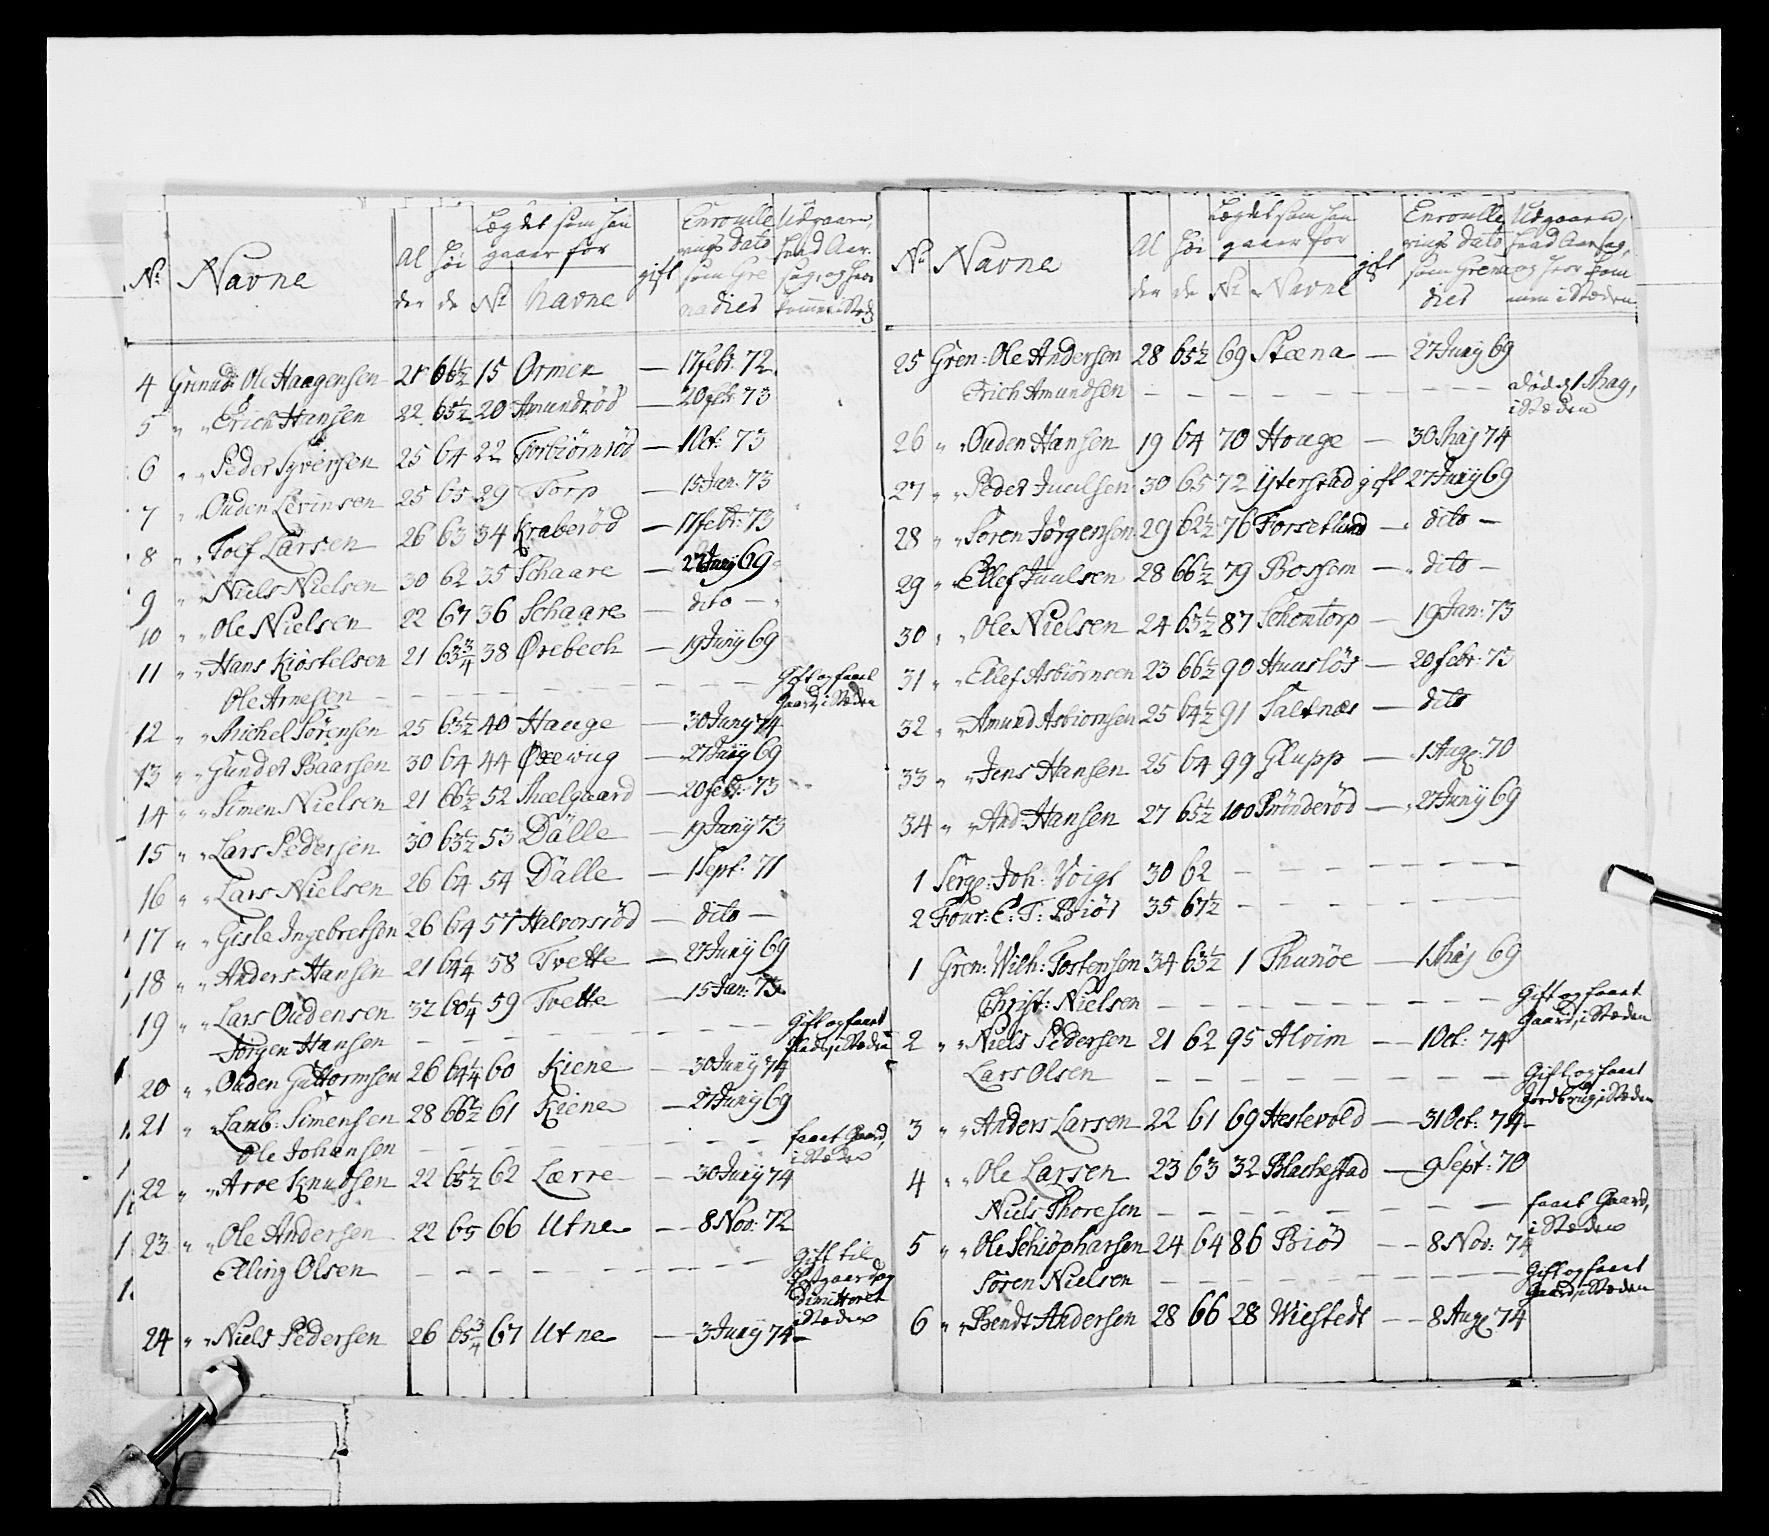 No Navne Al der Höi de Lægdet som han gaaer for No Navne gift Enroullerings Dato som Grenadier Udgaaen, hvad Aarsag, og hvor kommen i Stæden
4 Grenad: Ole Haagensen 28 66½ 15 Ormen — 17 febr: 72.
5 " " Erich Hansen 22 65½ 20 Amundröd — 20 febr: 73
6 " " Peder Syversen 25 64 22 Torbiörnröd — 1 Oct: 73
7 " " Ouden Levinsen 25 65 29 Torp — 15 Jan: 73
8 " " Toef Larsen 26 63 34 Kraberöd — 17 febr: 73
9 " " Niels Nielsen 30 62 35 Schaare — 27 Juny 69
10 " " Ole Nielsen 22 67 36 Schaare — dito —
11 " " Hans Kiöstelsen 21 63¾ 38 Örebech — 19 Juny 69
Ole Arnesen — — — — — — Gift og faaet Gaard, i Stæden
12 " " Michel Sörensen 25 63½ 40 Hauge — 30 Juny 74
13 " " Gunder Baarsen 30 64 44 Öxewiig — 27 Juny 69
14 " " Simen Nielsen 21 66½ 52 Mælgaard — 20 febr: 73
15 " " Lars Pedersen 30 63½ 53 Dälle — 19 Juny 73
16 " " Lars Nielsen 26 64 54 Dälle — 1 Sept: 71
17 " " Gisle Ingebretsen 26 64 57 Halvorsröd — dito —
18 " " Anders Hansen 21 64¼ 58 Tvette — 27 Juny 69
19 " " Lars Oudensen 32 60¼ 59 Tvette — 15 Jan: 73
Jörgen Hansen — — — — — — Gift og faaet Plads, i Stæden
20 " " Ouden Guttormsen 26 64¼ 60 Kiene — 30 Juny 74
21 " " Lamb: Simensen 28 66½ 61 Kiene — 27 Juny 69
Ole Johansen — — — — — faaet Gaard, i Stæden
22 " " Arve Knudsen 22 65½ 62 Lærre — 30 Juny 74
23 " " Ole Andersen 22 65 66 Utne — 8 Nov: 72
Elling Olsen — — — — — — Gift til Gaard og dimitteret i Stæden
24 " " Niels Pedersen 26 65¾ 67 Utne — 3 Juny 74 —
No Navne Al der Höi de Lægdet som han gaaer for No Navne gift Enroullerings Dato som Grenadier Udgaaen, hvad Aarsag, og hvor kommen i Stæden
25 Gren: Ole Andersen 28 65½ 69 Skæna — 27 Juny 69
Erich Amundsen — — — — — — död d 1 May, i Stæden
26 " " Ouden Hansen 19 64 70 Houge — 30 Maj 74
27 " " Peder Juulsen 30 65 72 Ysterstad gift 27 Juny 69
28 " " Sören Jörgensen 29 62½ 76 Forsetlund — dito —
29 " " Ellef Juulsen 28 66½ 79 Bossem — dito —
30 " " Ole Nielsen 24 63½ 87 Schontorp — 19 Jan: 73
31 " " Ellef Asbiörnsen 23 66½ 90 Huuslös — 20 febr: 73
32 " " Amund Asbiörnsen 25 64½ 91 Saltnæs — dito
33 " " Jens Hansen 25 64 99 Glupp — 1 Aug: 70
34 " " And: Hansen 27 65½ 100 Brönderöd — 27 Juny 69
1 Serg: Joh: Voigt 30 62 — — — — —
2 Four: C: T: Biör 35 67½ — — — — —
1 Gren: Wilh: Tostensen 34 63½ 1 Thunöe — 1 Maj 69
Christ: Nielsen — — — — — — Gift og faaet Gaard, i Stæden
2 " " Niels Pedersen 21 62 95 Alvim — — 1 Oct: 74
Lars Olsen — — — — — — Gift, og faaet Jordbrug, i Stæden
3 " " Anders Larsen 22 61 69 Hestevold — 31 Oct: 74 —
4 " " Ole Larsen 23 63 32 Blachestad — 9 Sept: 70
Niels Thoresen — — — — — — faaet Gaard, i Stæden
5 " " Ole Schiöpharsen 24 64 86 Biör — — 8 Nov: 74
Sören Nielsen — — — — — — Gift og faaet Gaard, i Stæden
6 " " Bendt Andersen 28 66 28 Wiestedt — — 8 Aug: 74